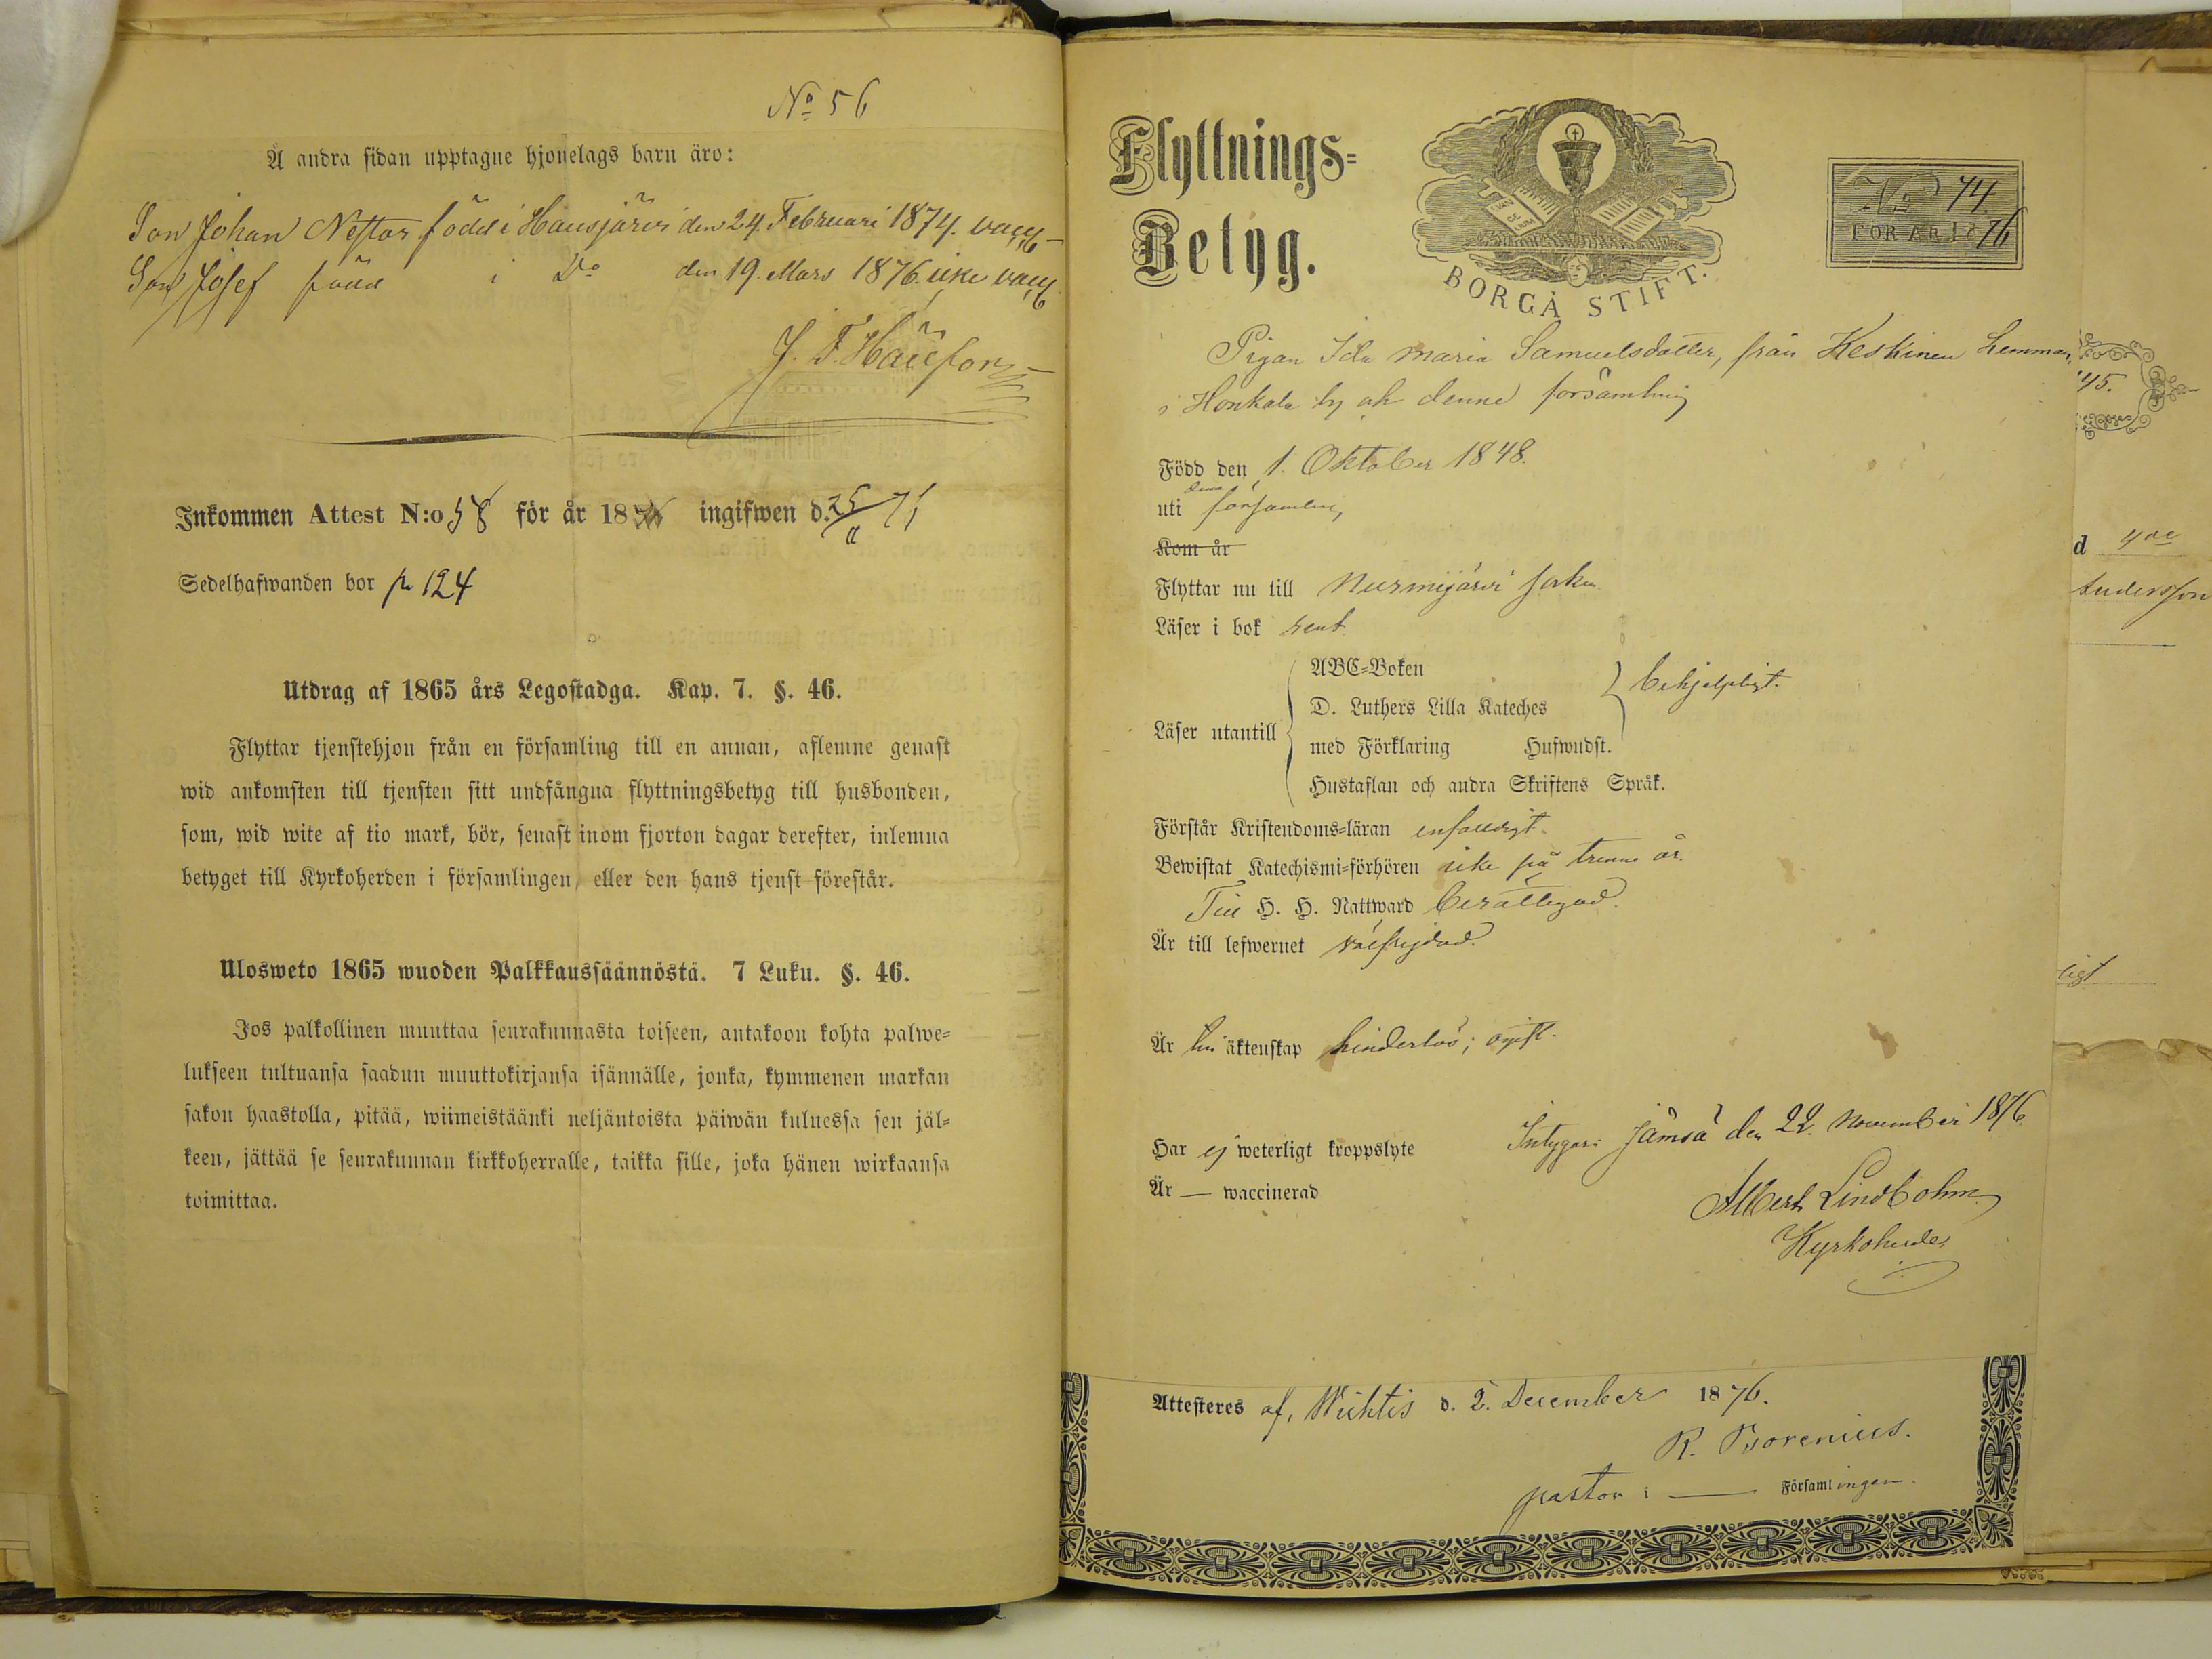 No 56
Å andra sidan upptagne hjonelags barn äro:
Son Johan Nestor född i Hausjärvi den 24. Februari 1874. vacc
Son Josef född i Do den 19. Mars 1876. icke vacc
Inkommen Attest N:o 58 för år 18 ingifwen d. 25
Sedelhafwanden bor p 124
Utdrag af 1865 års Legostadga. Kap. 7. §. 46.
Flyttar tjenstehjon från en församling till en annan, aflemne genast
wid ankomsten till tjensten sitt undfångna flyttningsbetyg till husbonden,
som, wid wite af tio mark, bör, senast inom fjorton dagar derefter, inlemna
betyget till Kyrkoherden i församlingen, eller den hans tjenst förestår.
Ulosweto 1865 wuoden Palkkaussäännöstä. 7 Luku. §. 46.
Jos palkollinen muuttaa seurakunnasta toiseen, antakoon kohta palwe-
lukseen tultuansa saadun muuttokirjansa isännälle, jonka, kymmenen markan
sakon haastolla, pitää, wiimeistäänki neljäntoista päiwän kuluessa sen jäl-
keen, jättää se seurakunnan kirkkoherralle, taikka sille, joka hänen wirkaansa
toimittaa.
Flyttnings-
Betyg.
BORGÅ STIFT.
No 74.
FÖR ÅR 1876
Pigan Ida Maria Samuelsdotter, från Keskinen hemman,
i Honkala by och denne församling
Född den 1. Oktober 1848.
uti denne församling
Kom år
Flyttar nu till Nurmijärvi socken
Läser i bok rent
Läser utantill
ABC-Boken
D. Luthers Lilla Kateches
med Förklaring Hufwudst.
Hustaflan och andra Skriftens Språk.
behjelpligt.
Förstår Kristendoms-läran enfaldigt.
Bewistat Katechismi-förhören icke på trenne år.
Till H. H. Nattward berättigad.
Är till lefwernet välfrejdad.
Är till äktenskap hinderlös; ogift.
Har ej weterligt kroppslyte
Är — waccinerad
Intygar: Jämsä den 22. November 1876
Albert Lindbohm.
Kyrkoherde.
Attesteres af, Wichtis d. 2. December 1876.
R. Pvorenius.
pastor i — Församlingen.
45.
d
Andersson
ligt